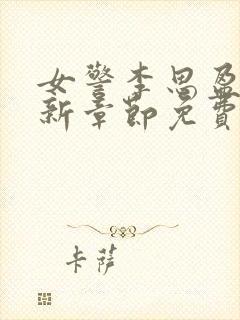 女警李思盈
新章节免费
卡萨